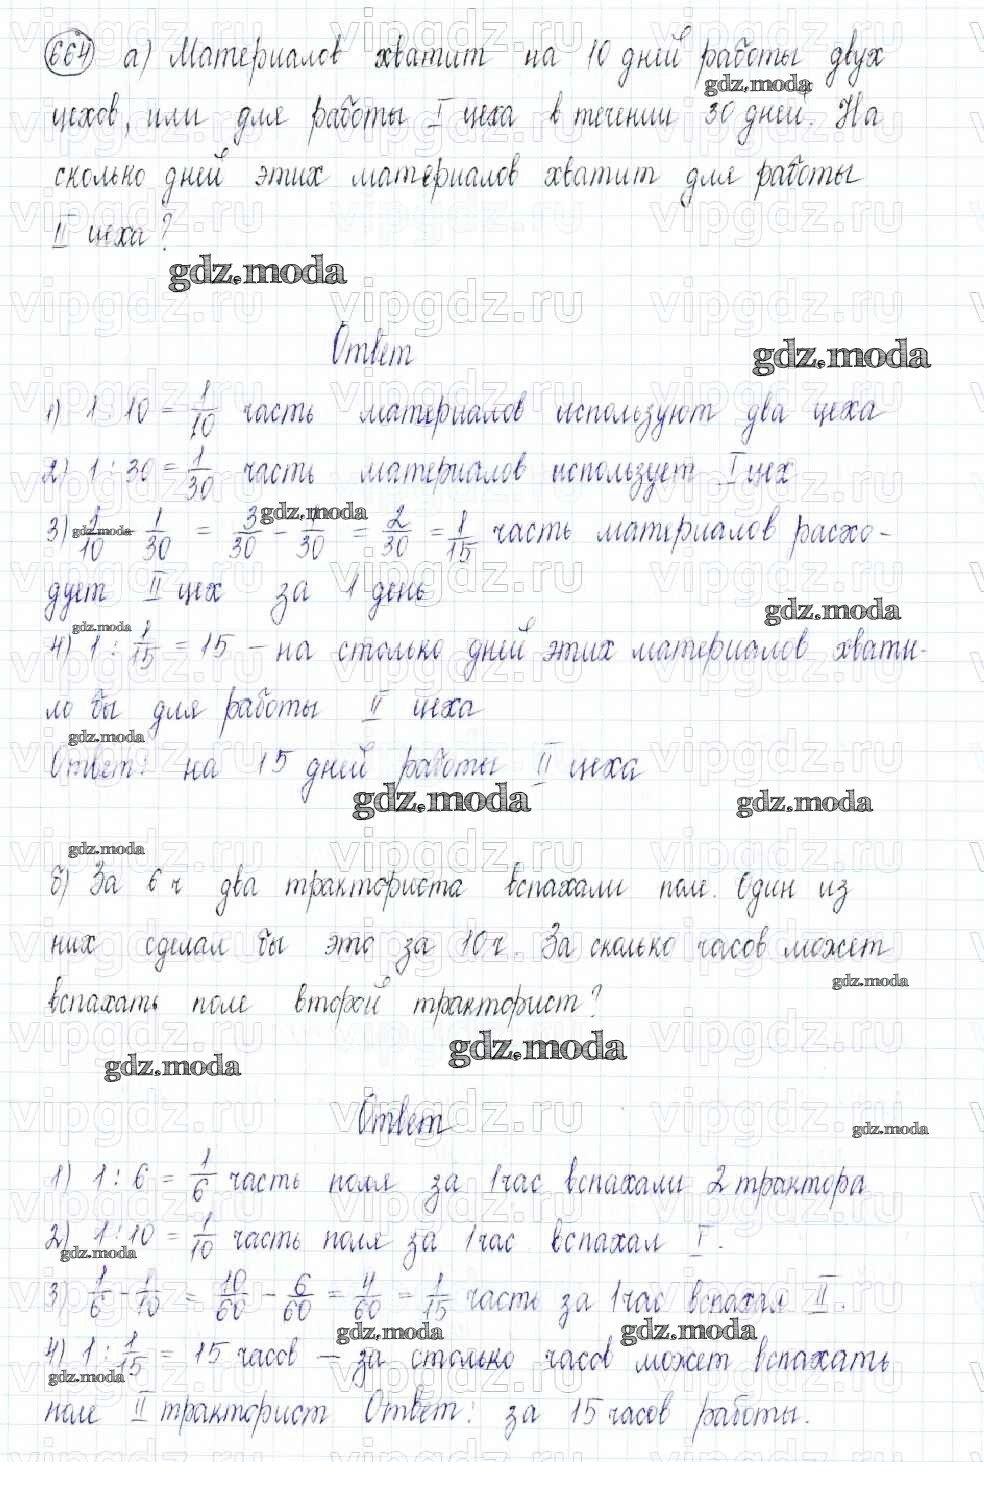 664 а) Материалов хватит на 10 дней работы двух
цехов, или для работы I цеха в течении 30 дней. На
сколько дней этих материалов хватит для работы
II цеха?
gdz.moda
Ответ
1) 1 : 10 = 1/10 часть материалов используют два цеха
2) 1 : 30 = 1/30 часть материалов использует I цех
3) 1/10 - 1/30 = 3/30 - 1/30 = 2/30 = 1/15 часть материалов расхо-
дует II цех за 1 день
4) 1 : 1/15 = 15 – на столько дней этих материалов хвати-
ло бы для работы II цеха
Ответ: на 15 дней работы II цеха
б) За 6 ч два тракториста вспахали поле. Один из
них сделал бы это за 10 ч. За сколько часов может
вспахать поле второй тракторист?
Ответ
1) 1 : 6 = 1/6 часть поля за 1 час вспахали 2 трактора
2) 1 : 10 = 1/10 часть поля за 1 час вспахал I.
3) 1/6 - 1/10 = 10/60 - 6/60 = 4/60 = 1/15 часть за 1 час вспахал II.
4) 1 : 1/15 = 15 часов – за столько часов может вспахать
поле II тракторист Ответ: за 15 часов работы.
vipgdz.ru